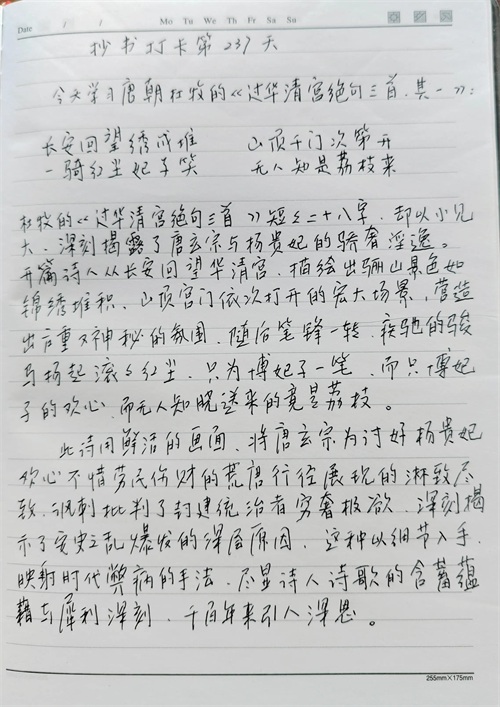 Date / / Mo Tu We Th Fr Sa Su
抄书打卡第237天
今天学习唐朝杜牧的《过华清宫绝句三首.其一》:
长安回望绣成堆 山顶千门次第开
一骑红尘妃子笑 无人知是荔枝来
杜牧的《过华清宫绝句三首》短短二十八字,却以小见
大、深刻揭露了唐玄宗与杨贵妃的骄奢淫逸。
开篇诗人从长安回望华清宫,描绘出骊山景色如
锦绣堆积、山顶宫门依次打开的宏大场景,营造
出庄重又神秘的氛围,随后笔锋一转,疾驰的骏
马扬起滚々红尘,只为博妃子一笔,而只博妃
子的欢心,而无人知晓送来的竟是荔枝。
此诗用鲜活的画面,将唐玄宗为讨好杨贵妃
欢心不惜劳民伤财的荒唐行径展现的淋致尽
致,讽刺批判了封建统治者穷奢极欲,深刻揭
示了安史之乱爆发的深层原因,这种以细节入手,
映射时代弊病的手法,尽显诗人诗歌的含蓄蕴
藉与犀利深刻,千百年来引人深思。
255mm×175mm